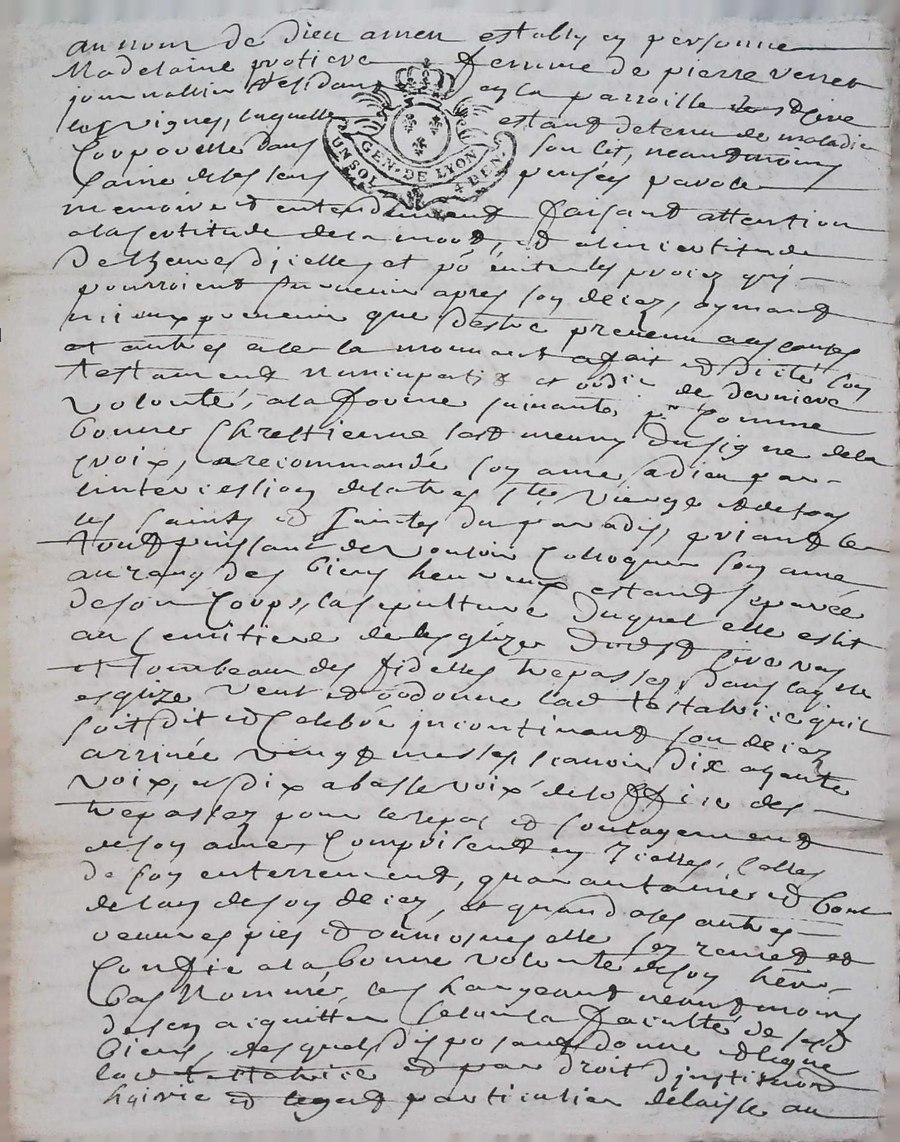 au nom de dieu amen estably en personne
Madelaine protiere femme de pierre verret
journallier residant en la parroisse de
les vignes, laquelle estant detenue de maladie
Corporelle dans son lit, neantmoins
saine de ses sens pensey parolle
UN SOL GEN. DE LYON 4 DEN.
memoire et entendement faisant attention
a la certitude de la mort, et a lincertitude
de lheure dicelle, et po. eviter les procez qui
pourroient survenir apres son decez, aymant
mieux prevenir que destre prevenu aux
et autres a fait et dicté son
testament nuncupatif et ordre de derniere
volonté, a la forme suivante, pr. Comme
bonne Chrestienne sest meuny du signe de la
croix, a recommandé son ame, a dieu par
lintercession de la tres ste. vierge et de tous
les saints et saintes du paradis, priant le
tout puissant de vouloir Colloquer son ame
au rang des biens heureux estant separée
de son Corps, la sepulture duquel elle eslit
au Cemitiere de lesglize dud.
et tombeau des fidelles trepassez, dans laqlle
esglize veut et ordonne lad. testatrice quil
soit dit et Celebré incontinant son decez
arrivée vingt messes, scavoir dix a haute
voix, et dix a basse voix de loffice des
trepassez pour le repos et soulagement
de son ame, Comprisent en icelles, Celles
de son enterrement, quarantaine et bout
de lan de son decez, et quand a ses autres
oeuvres pies et aumosnes elle sen remet et
Confie a la bonne volonté de son heri.
bas Nommé, les chargeant neantmoins
de sen aquitter selon la faculté de sesd.
biens, desquels disposant donne et legue
lad. testatrice et par droit dinstitution
hairie et legat particulier delaisse au